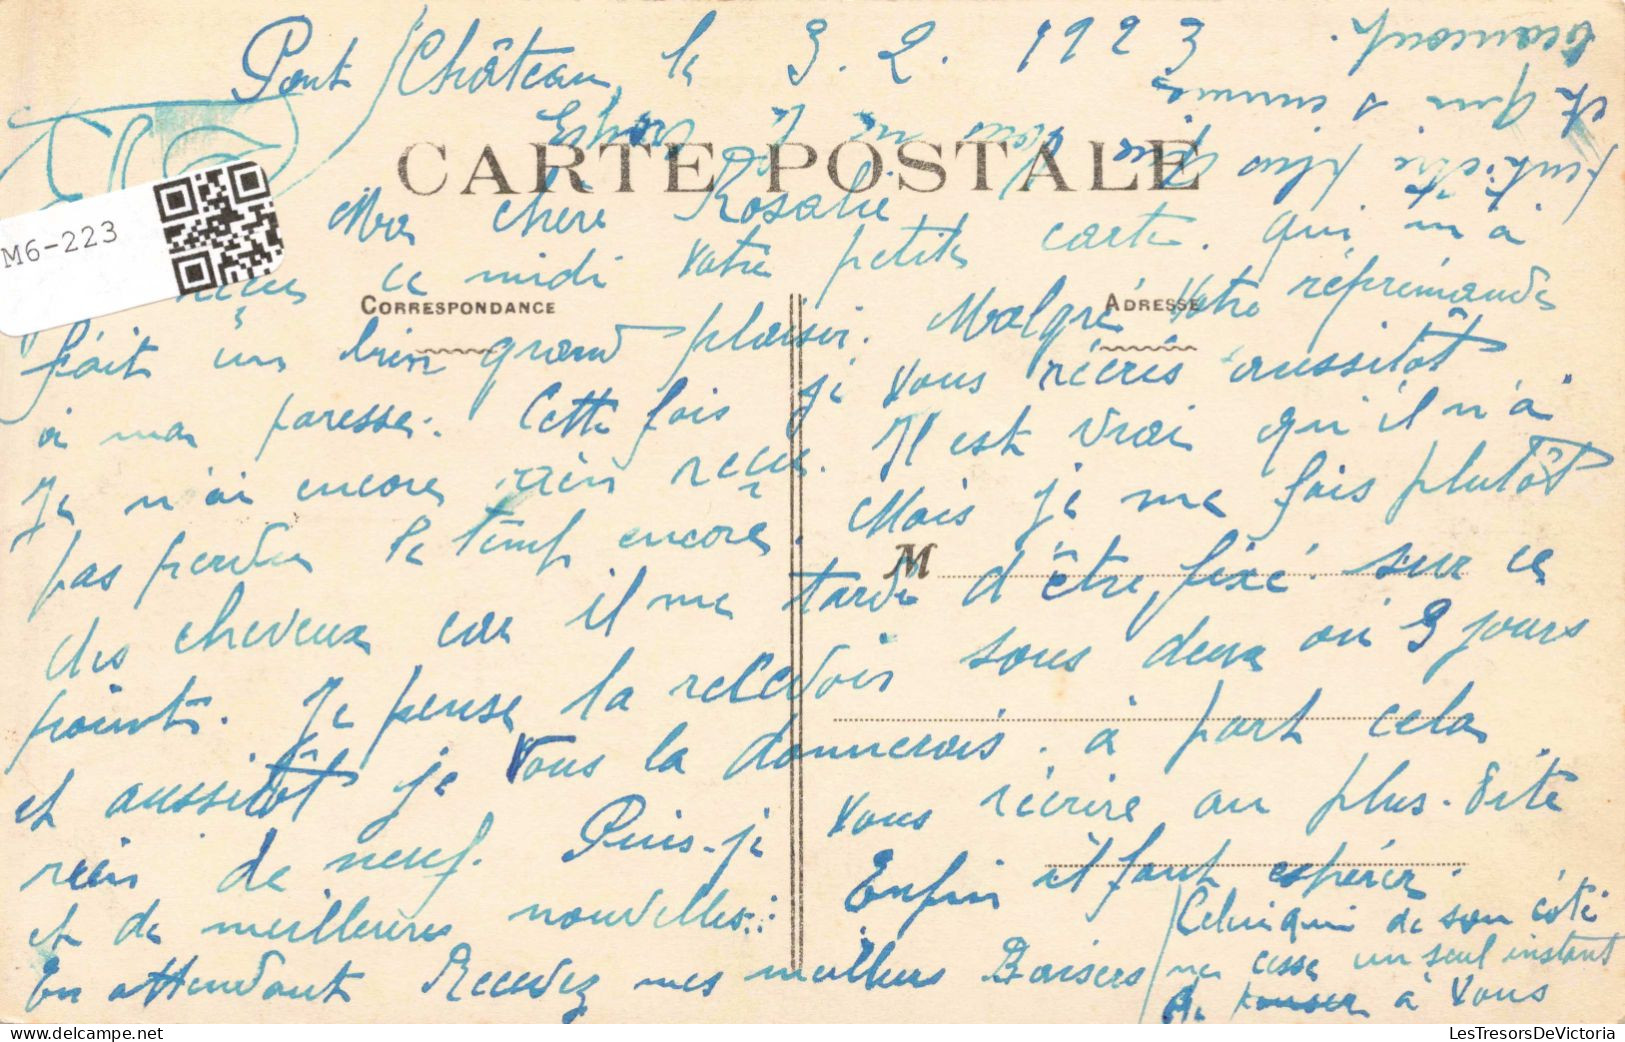 Pont Château, le 3. 2. 1923
CARTE POSTALE
M6-223
Ma chère Rosalie
reçu ce midi votre petite carte. qui m'à
CORRESPONDANCE
ADRESSE
fait un bien grand plaisir. Malgré votre réprimande
à ma paresse. Cette fois je vous récris aussitôt
Je n'ai encore rien reçu. Il est vrai qu'il n'à
pas perdu le temps encore. Mais je me fais plutôt
M
des cheveux car il me tarde d'être fixé sur ce
point. Je pense la recevoir sous deux ou 3 jours
et aussitôt je vous la donnerais. à part cela
rien de neuf. Puis-je vous récrire au plus vite
et de meilleures nouvelles. Enfin il faut espérer.
En attendant Recevez mes meilleurs Baisers
Celui qui de son côté
ne cesse un seul instant
de penser à vous
peut-être plus que vous ne le croyez
et qui s'ennuie
beaucoup.
LesTresorsDeVictoria.com